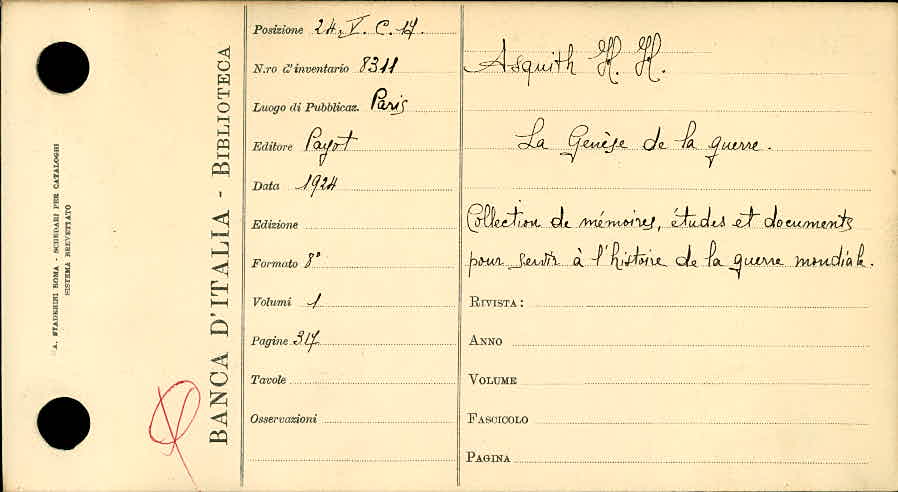 A. STADERINI ROMA - SCHEDARI PER CATALOGHI
SISTEMA BREVETTATO
BANCA D'ITALIA - BIBLIOTECA
Posizione 24. V. C. 17.
N.ro d'inventario 8311
Luogo di Pubblicaz. Paris
Editore Payot
Data 1924
Edizione
Formato 8°
Volumi 1
Pagine 317
Tavole
Osservazioni
Asquith H. H.
La Genèse de la guerre.
Collection de mémoires, études et documents
pour servir à l'histoire de la guerre mondiale.
RIVISTA:
ANNO
VOLUME
FASCICOLO
PAGINA